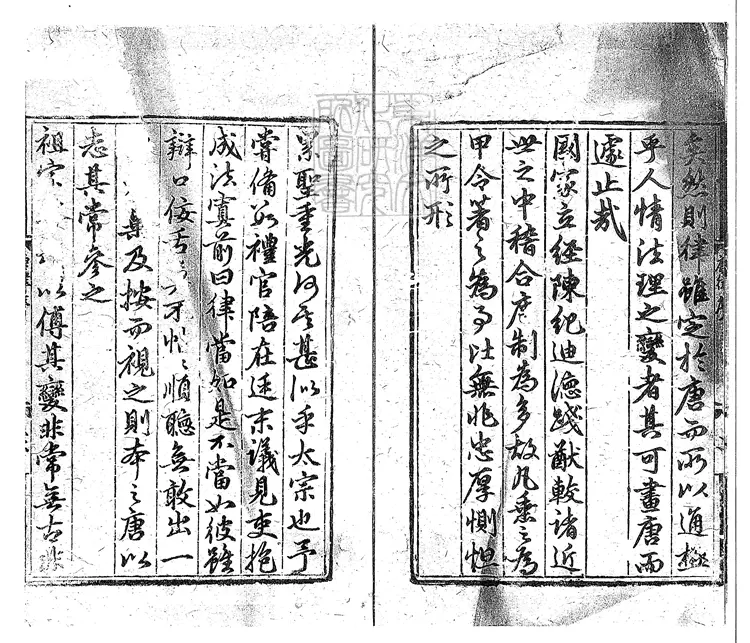 然則律雖定於唐而所以通極
乎人情法理之變者其可畫唐而
遽止哉
國家立經陳紀迪德踐猷較諸近
世之中稽合唐制為多故凡乘之為
甲令著之為事比無非忠厚惻怛
之所形
累聖重光何其甚似乎太宗也予
嘗備數禮官陪在廷末議見吏抱
成法寘前曰律當如是不當如彼雖
辯口佞舌才順聽無敢出一
及按而視之則本之唐以
志其常參之
祖宗以傅其變非常無古非